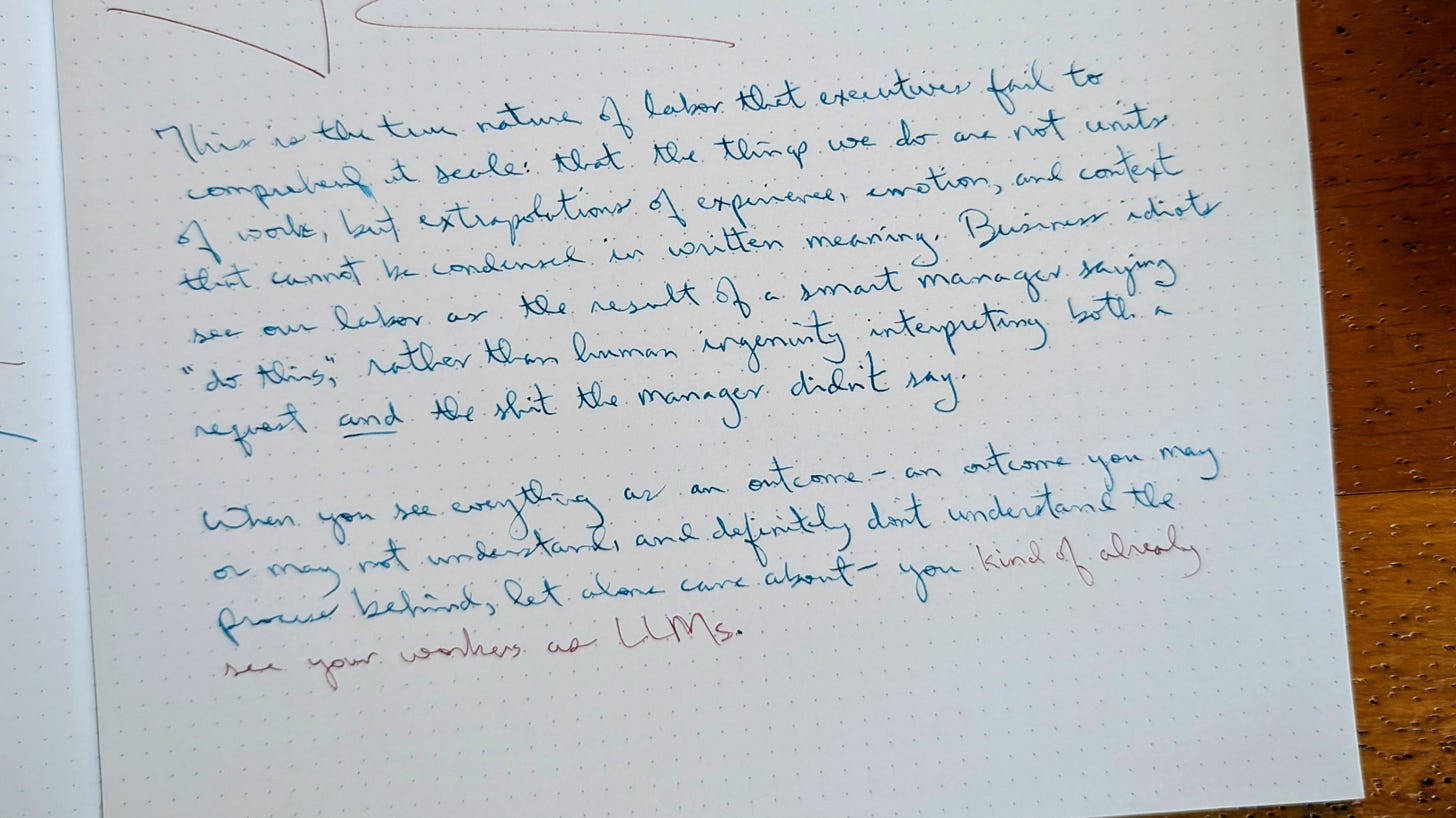 This is the true nature of labor that executives fail to
comprehend at scale: that the things we do are not units
of work, but extrapolations of experience, emotion, and context
that cannot be condensed in written meaning. Business idiots
see our labor as the result of a smart manager saying
"do this," rather than human ingenuity interpreting both a
request and the shit the manager didn't say.
When you see everything as an outcome - an outcome you may
or may not understand, and definitely don't understand the
process behind, let alone care about - you kind of already
see your workers as LLMs.